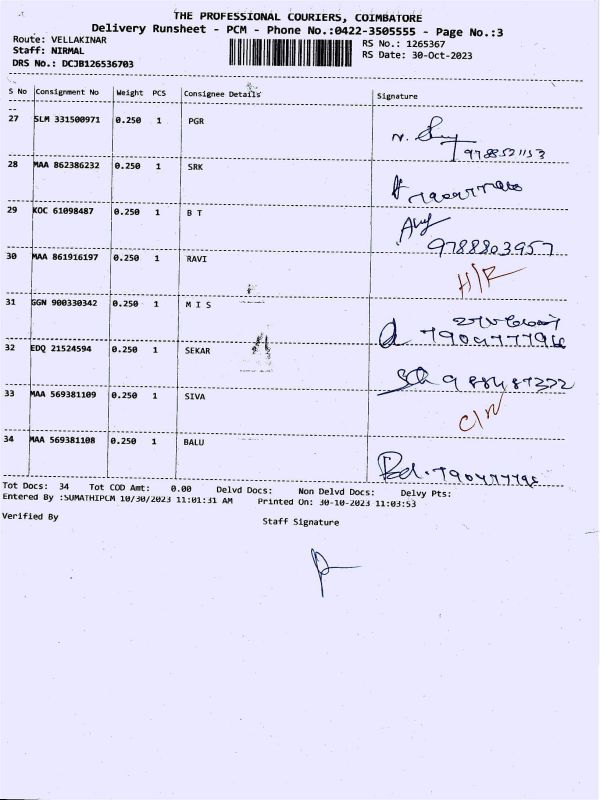 THE PROFESSIONAL COURIERS, COIMBATORE
Delivery Runsheet - PCM - Phone No.:0422-3505555 - Page No.:3
Route: VELLAKINAR RS No.: 1265367
Staff: NIRMAL RS Date: 30-Oct-2023
DRS No.: DCJB126536703
S No Consignment No Weight PCS Consignee Details Signature
27 SLM 331500971 0.250 1 PGR
9788521153
28 MAA 862386232 0.250 1 SRK
29 KOC 61098487 0.250 1 B T
9788803957
30 MAA 861916197 0.250 1 RAVI H/R
31 GGN 900330342 0.250 1 M I S
7904777796
32 EDQ 21524594 0.250 1 SEKAR
33 MAA 569381109 0.250 1 SIVA
34 MAA 569381108 0.250 1 BALU
Tot Docs: 34 Tot COD Amt: 0.00 Delvd Docs: Non Delvd Docs: Delvy Pts:
Entered By :SUMATHIPCM 10/30/2023 11:01:31 AM Printed On: 30-10-2023 11:03:53
Verified By Staff Signature